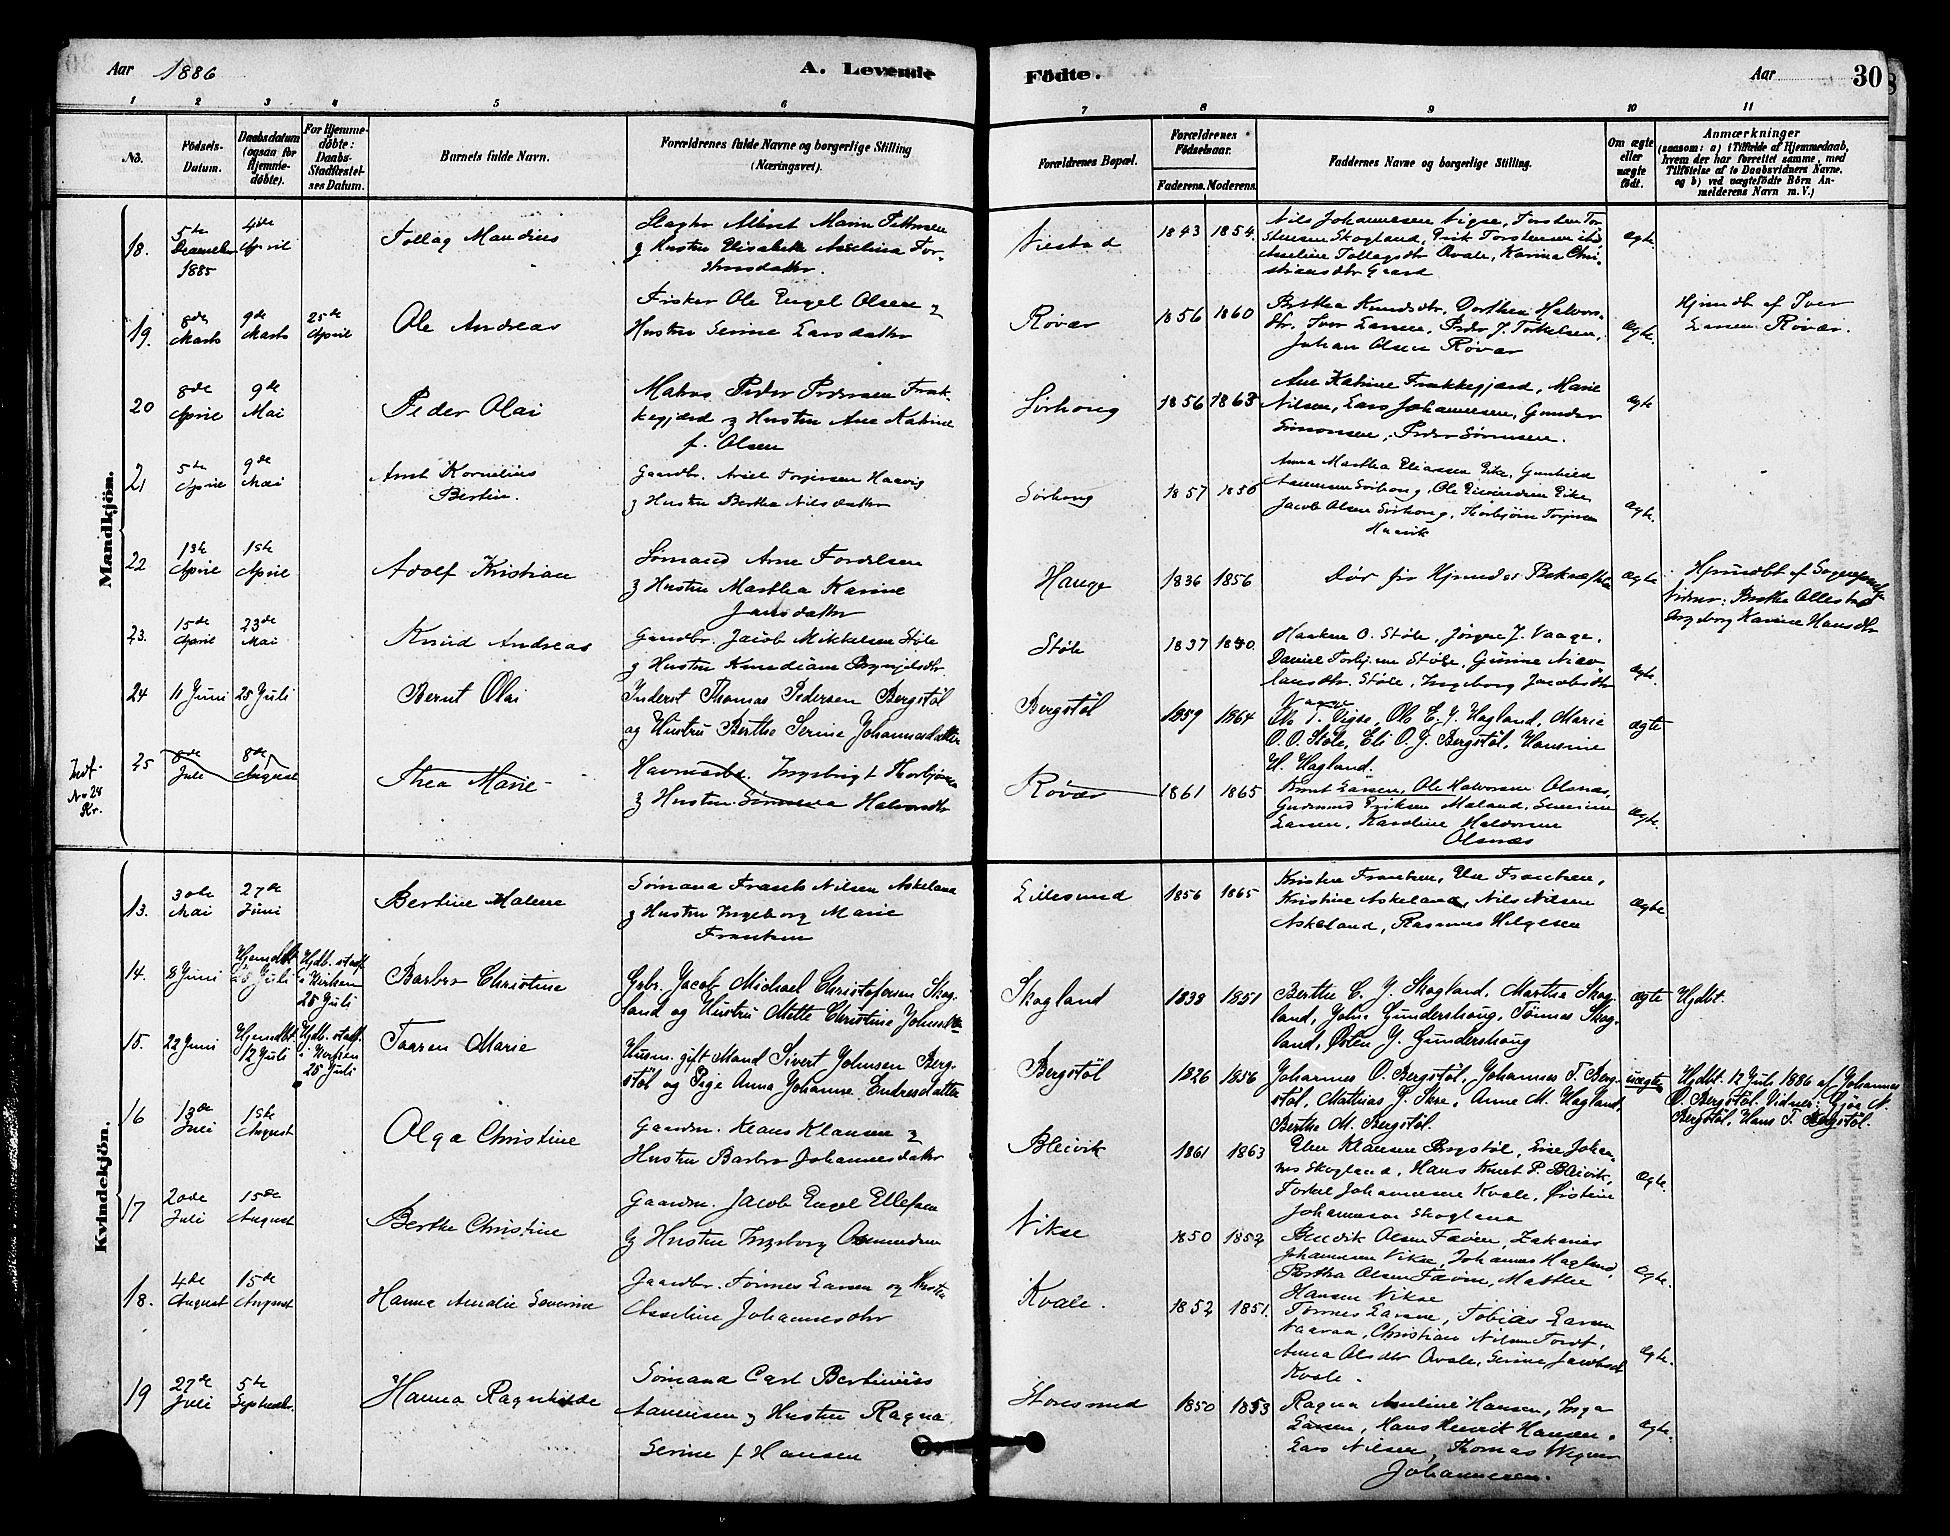 Aar 1886
A. Levende
Födte.
Aar
30
1 2 3 4 5 6 7 8 9 10 11
No.
Födsels-Datum.
Daabsdatum (ogsaa for Hjemmedöbte).
For Hjemmedöbte: Daabs-Stadfæstelses Datum.
Barnets fulde Navn.
Forældrenes fulde Navne og borgerlige Stilling (Næringsvei).
Forældrenes Bopæl.
Forældrenes Födselsaar.
Faderens. Moderens.
Faddernes Navne og borgerlige Stilling.
Om ægte eller uægte født.
Anmærkninger
(saasom: a) i Tilfælde af Hjemmedaab, hvem der har forrettet samme, med Tilföielse af to Daabsvidners Navne, og b) ved uægtefödte Börn Anmelderens Navn m. V.)
Mandkjön.
18. 5te December 1885 4de April
Tollag Mandius
Hustru Elisabeth Aselina
1843 1854.
Nils Johannesen
Skogland
Aseline Tollagsdtr Qvale, Karina
Ægte.
19. 8de Marts 9de Marts 25de April
Ole Andreas
Fisker Ole Engel Olsen &
Hustru Serine Larsdatter
Røvær
1856 1860
Bertha Knudsdtr, Dorthea Halvors-
dtr, Iver Larsen, Peder J. Torkelsen,
Johan Olsen Røvær
Ægte.
Hjemdbt af Iver
Larsen Røvær.
20 8de April 9de Mai
Peder Olai
Matros Peder Pedersen
& Hustru Ane Katrine
f. Olsen
Sörhoug
1856 1863
Ane Katrine Marie
Nilsen, Lars Johannesen, Gunder
Simonsen, Peder Sørensen.
Ægte
21 5te April 9de Mai
Amt Kornelius
Bertin.
Gaardbr. Torjersen Haavig
& Hustru Bertha Nilsdatter
Sörhoug
1857 1856
Anna Martha Eliassen Eike, Gunhild
Sörhoug, Ole Eivindsen Eike,
Jacob Olsen Sörhoug, Thorbjørn Torjersen
Haavik
Ægte.
22 13de April 15de April
Adolf Kristian
Sømand Arne
& Hustru Martha Karine
Hauge
1836 1856
Død før Hjemdøb Bekræftelse
Ægte
Hjemdbt af
Vidner: Bertha
Ingeborg Karine Hansdtr
23. 15de April 23de Mai
Knud Andreas
Gaardbr. Jacob Mikkelsen Støle
& Hustru
Støle
1837
Haaken O. Støle, Jørgen J. Vaage,
Daniel Torbjørnsen Støle, Gurine
Støle, Ingeborg Jacobsdtr
Ægte.
24 11 Juni 25 Juli
Bernt Olai
Inderst Thomas Pedersen Bergstöl
og Hustru Berthe Serine Johannesdatter
Bergstöl
1859 1864
Ole T. Vigse, Ole E. J. Hagland, Marie
O. O. Stöle, Eli O. J. Bergstöl, Hansine
H. Hagland.
ægte
Indf. No 28 Kr.
25 8de Juli 8de August
Thea Marie
Ingebrigt Thorbjørnsen
& Hustru Halvorsdtr
Røvær
1861 1865
Larsen, Ole Halvorsen Olsnæs,
Gudmund Eriksen Maland, Severine
Larsen, Karoline Halvorsen
Olsnæs
Ægte.
Kvindekjön.
13. 30te Mai 27de Juni
Bertine Malene
Sømand Frants Nilsen Askeland
& Hustru Ingeborg Marie
Frantsen
Lillesund
1856 1865
Kristine Frantsen, Frantsen,
Kristine Askeland, Nils Nilsen
Askeland, Rasmus Helgesen
ægte
14. 8 Juni Hjemdbt 25 Juli Hjdb. stadf. i Kirken 25 Juli
Barbro Christine
Gbr. Jacob Michael Christofersen Skog-
land og Hustru Mette Christine
Skogland
1838 1851
Berthe C. J. Skogland, Marthe Skog-
land, John Gundershaug, Tönnes Skog-
land, Östen J. Gundershaug
ægte
Hjdbt.
15. 22 Juni Hjemdbt 12 Juli Hjdb. stadf. i Kirken 25 Juli
Taaren Marie
Husm. gift Mand Sivert Johnsen Berg-
stöl og Pige Anna Johanne Endresdatter
Bergstöl
1826 1856
Johannes O. Bergstöl, Johannes T. Berg-
stöl, Mathias J. Skre, Anne M. Hagland,
Berthe M. Bergstöl.
uægte
Hjdbt. 12 Juli 1886 af Johannes
O. Bergstöl. Vidner: Gjöa N.
Bergstöl, Hans T. Bergstöl.
16 13de Juli 15de August
Olga Christine
Gaardm. Klaus Klausen &
Hustru Barbro Johannesdatter
Bleivik
1861 1863
Klausen Bergstöl, Johan-
nes Skogland, Hans Knut P. Bleivik,
Torkel Johannesen Kvale, Øistine
Johannesen Skogland
Ægte.
17 20de Juli 15de August
Berthe Christine
Gaardm. Jacob Engel Ellefsen
& Hustru Ingeborg
Vikse
1850 1852
Olsen Fævøen, Zakarias
Johannesen Vikse, Johannes Hagland,
Bertha Olsen Fævøen, Mathea
Hansen Vikse
Ægte.
18. 4de August 15de August
Hanna Amalie Severine
Gaardbr. Tønnes Larsen og Hustru
Aseline Johannesdtr
Kvale.
1852 1851.
Tønnes Larsen, Tobias Larsen
Christian Nilsen
Anna Olsdtr Qvale, Serine Jacobsd.
Kvale.
Ægte.
19 27de Juli 5te Septembr.
Hanna Ragnhilde
Sømand Carl Bertinius
& Hustru Ragna
Serine f. Hansen
Storesund
1850 1853
Ragna Aseline Hansen, Inga
Larsen, Hans Henrik Hansen.
Lars Nilsen, Thomas
Johannesen.
Ægte.